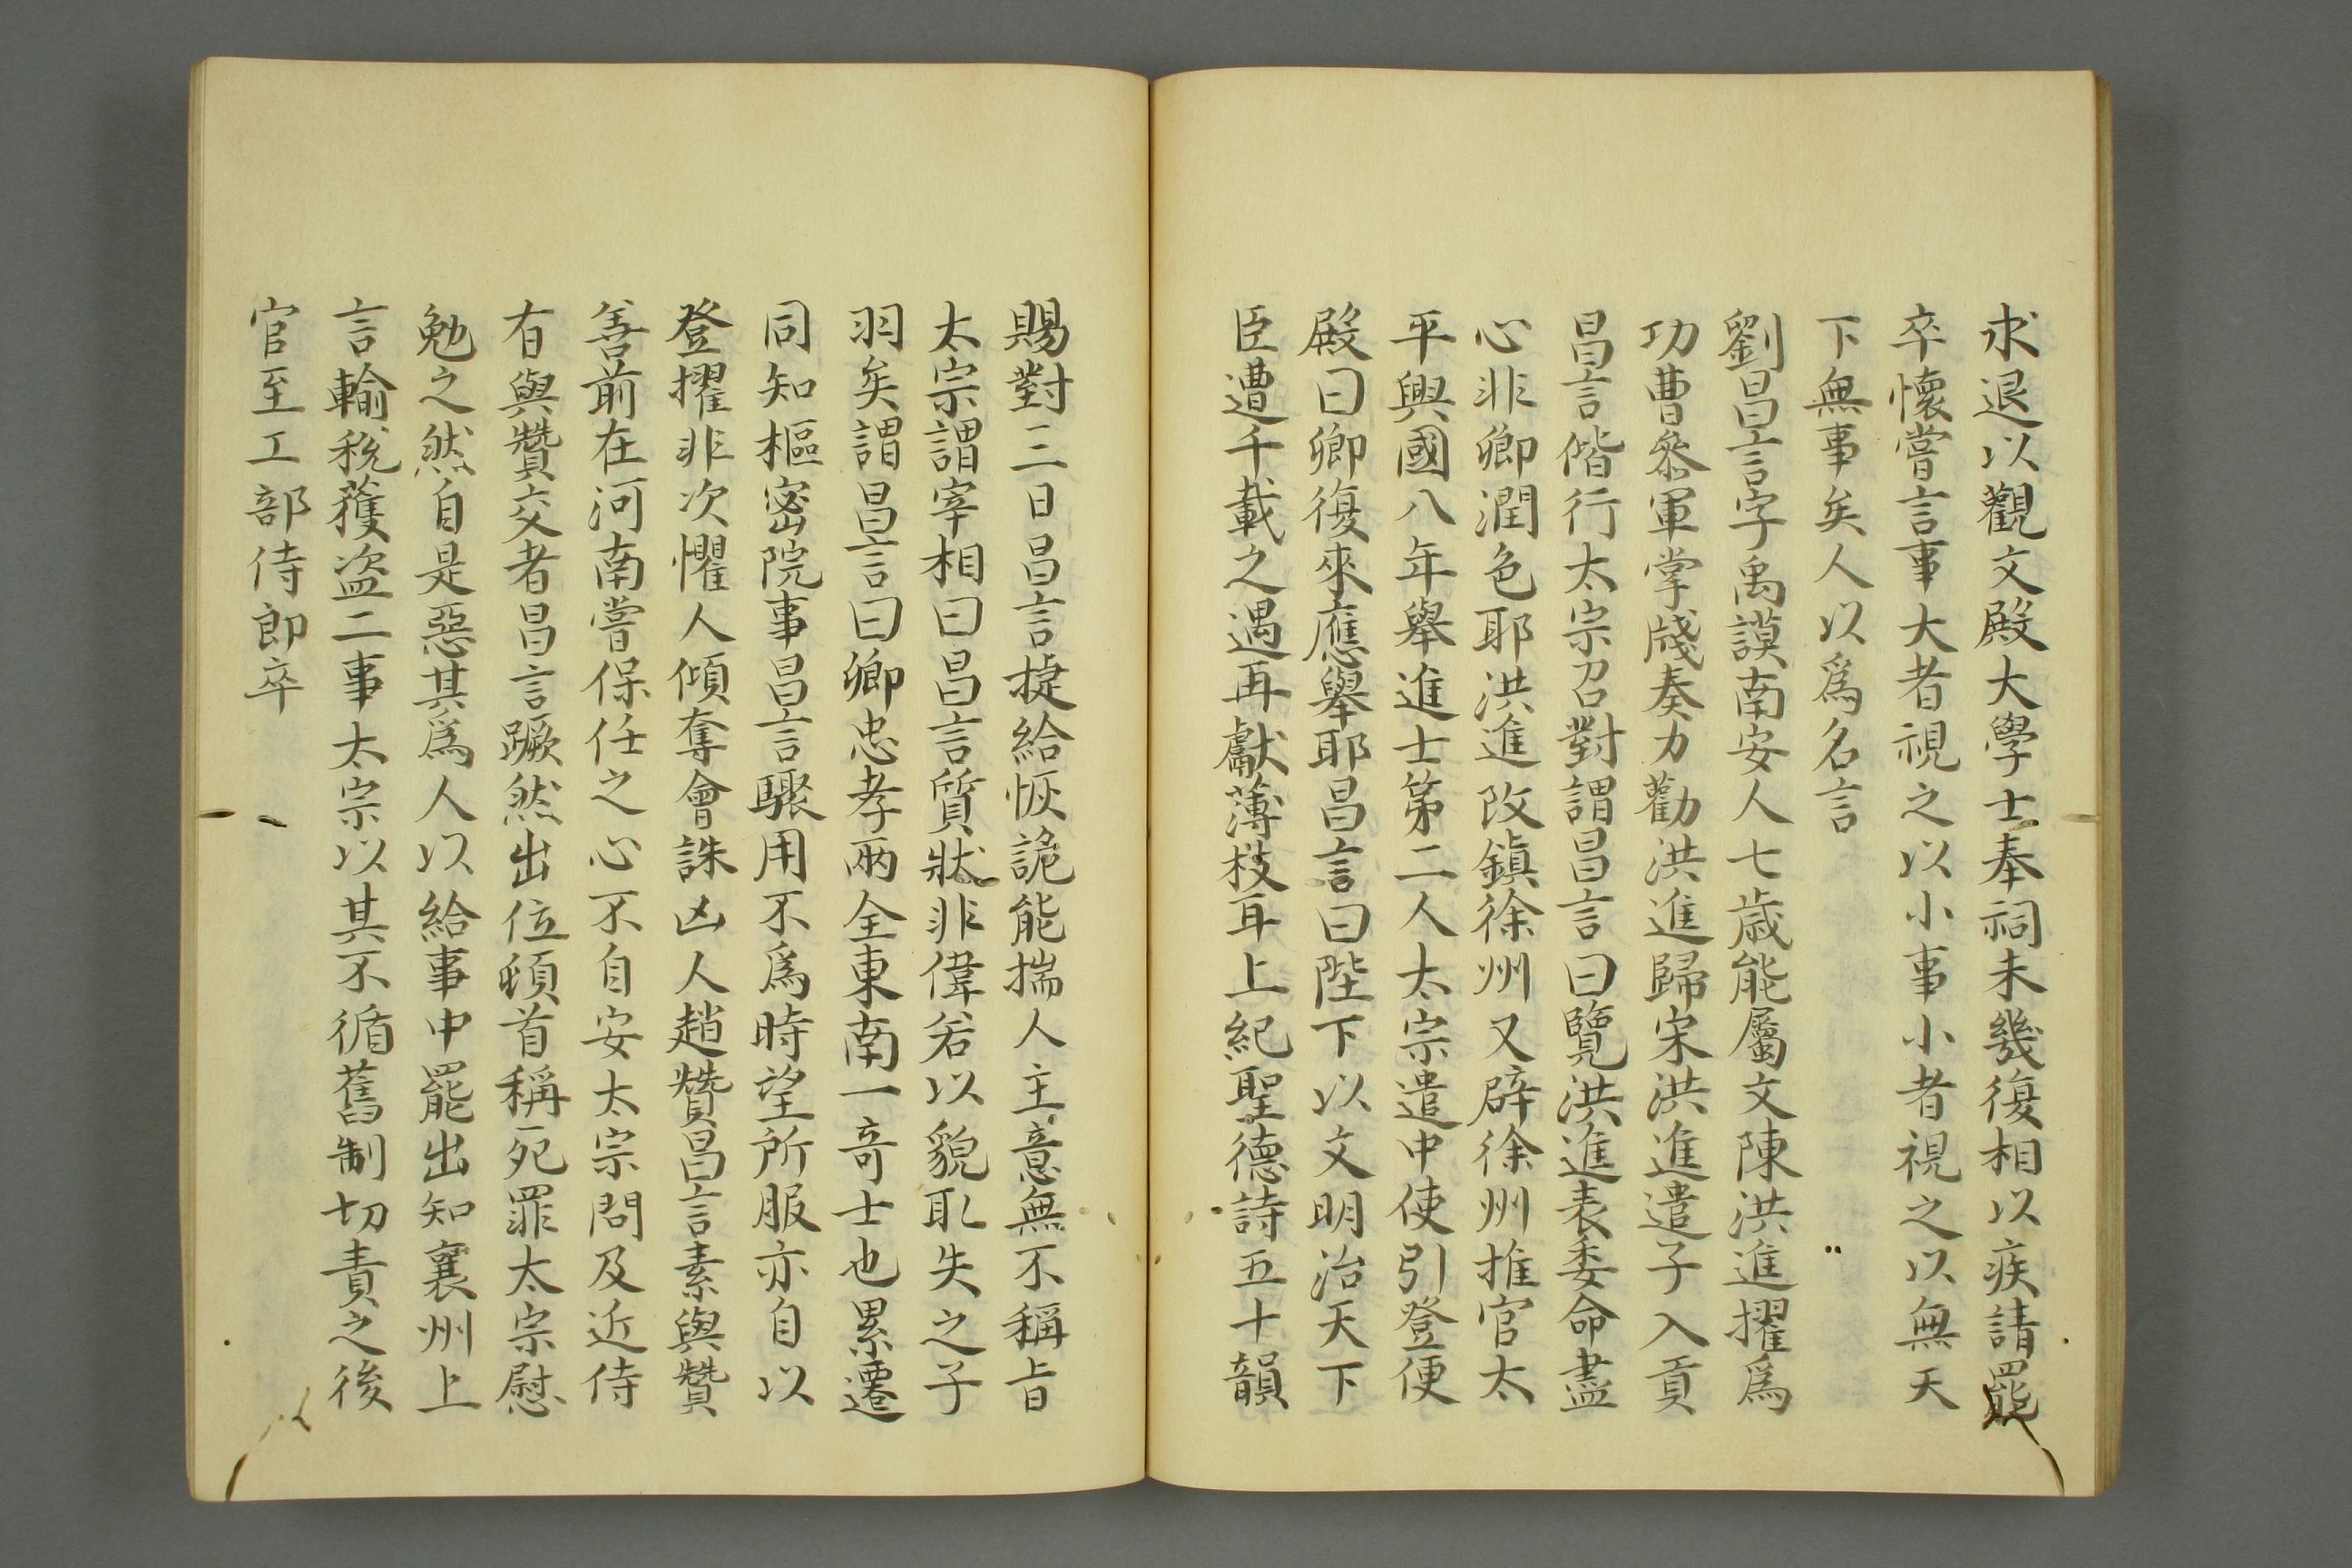 求退以觀文殿大學士奉祠未幾復相以疾請罷
卒懷嘗言事大者視之以小事小者視之以無天
下無事矣人以爲名言
劉昌言字禹謨南安人七歲能屬文陳洪進擢爲
功曹叅軍掌牋奏力勸洪進歸宋洪進遣子入貢
昌言偕行太宗召對謂昌言曰覽洪進表委命盡
心非卿潤色耶洪進改鎮徐州又辟徐州推官太
平興國八年舉進士第二人太宗遣中使引登便
殿曰卿復來應舉耶昌言曰陛下以文明治天下
臣遭千載之遇再獻薄技耳上紀聖德詩五十韻
賜對三日昌言捷給恢詭能揣人主意無不稱旨
太宗謂宰相曰昌言質狀非偉若以貌取失之子
羽矣謂昌言曰卿忠孝兩全東南一奇士也累遷
同知樞密院事昌言驟用不爲時望所服亦自以
登擢非次懼人傾奪會誅凶人趙贊昌言素與贊
善前在河南嘗保任之心不自安太宗問及近侍
有與贊交者昌言蹶然出位頓首稱死罪太宗慰
勉之然自是惡其爲人以給事中罷出知襄州上
言輸稅獲盜二事太宗以其不循舊制切責之後
官至工部侍郎卒